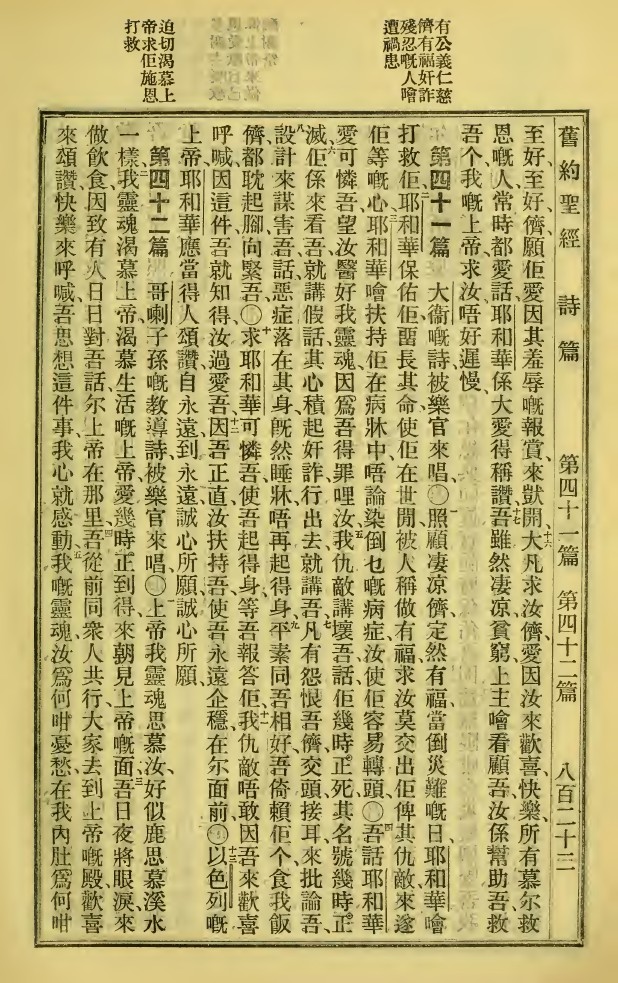 有公義仁慈
儕有福奸詐
殘忍嘅人噲
遭禍患
迫切渴慕上
帝求佢施恩
打救
舊約聖經 詩篇 第四十一篇 第四十二篇 八百二十三
至好、至好儕願佢愛因其羞辱嘅報賞、來獃開、十六大凡求汝儕、愛因汝來歡喜、快樂、所有慕尔救
恩嘅人、常時都愛話、耶和華係大、愛得稱讚、十七吾雖然凄凉貧窮、上主噲看顧吾、汝係幫助吾、救
吾个、我嘅上帝求汝唔好遲慢、
第四十一篇 大衛嘅詩、被樂官來唱、〇一照顧凄凉儕、定然有福、當倒災難嘅日、耶和華噲
打救佢、二耶和華保佑佢、留長其命、使佢在世間、被人稱做有福、求汝莫交出佢俾其仇敵來遂
佢等嘅心、三耶和華噲扶持佢在病牀中、唔論染倒乜嘅病症、汝使佢容易轉頭、〇四吾話、耶和華
愛可憐吾、望汝醫好我靈魂、因爲吾得罪哩汝、五我仇敵講壞吾、話、佢幾時正死、其名號幾時正
滅、六佢係來看吾、就講假話、其心積起奸詐、行出去就講吾、七凡有怨恨吾儕、交頭接耳來批論吾、
設計來謀害吾、八話、惡症落在其身、旣然睡牀、唔再起得身、九平素同吾相好、吾倚賴佢个、食我飯
儕、都耽起腳向緊吾、〇十求耶和華可憐吾、使吾起得身、等吾報答佢、十一我仇敵唔敢因吾來歡喜
呼喊、因這件吾就知得汝過愛吾、十二因吾正直、汝扶持吾、使吾永遠企穩在尔面前、〇十三以色列嘅
上帝耶和華、應當得人頌讚、自永遠到永遠、誠心所願、誠心所願、
第四十二篇 哥喇子孫嘅教導詩、被樂官來唱、〇一上帝、我靈魂思慕汝、好似鹿思慕溪水
一樣、二我靈魂渴慕上帝、渴慕生活嘅上帝、愛幾時正到得來朝見上帝嘅面、三吾日夜將眼淚來
做飲食、因致有人日日對吾話、尔上帝在那里、四吾從前同衆人共行、大家去到上帝嘅殿、歡喜
來頌讚、快樂來呼喊、吾思想這件事、我心就感動、五我嘅靈魂、汝爲何咁憂愁、在我內肚爲何咁